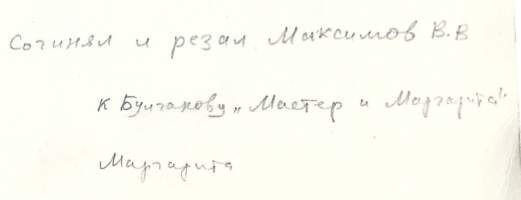 Сочинял и резал Максимов В.В
к Булгакову „Мастер и Маргарита"
Маргарита